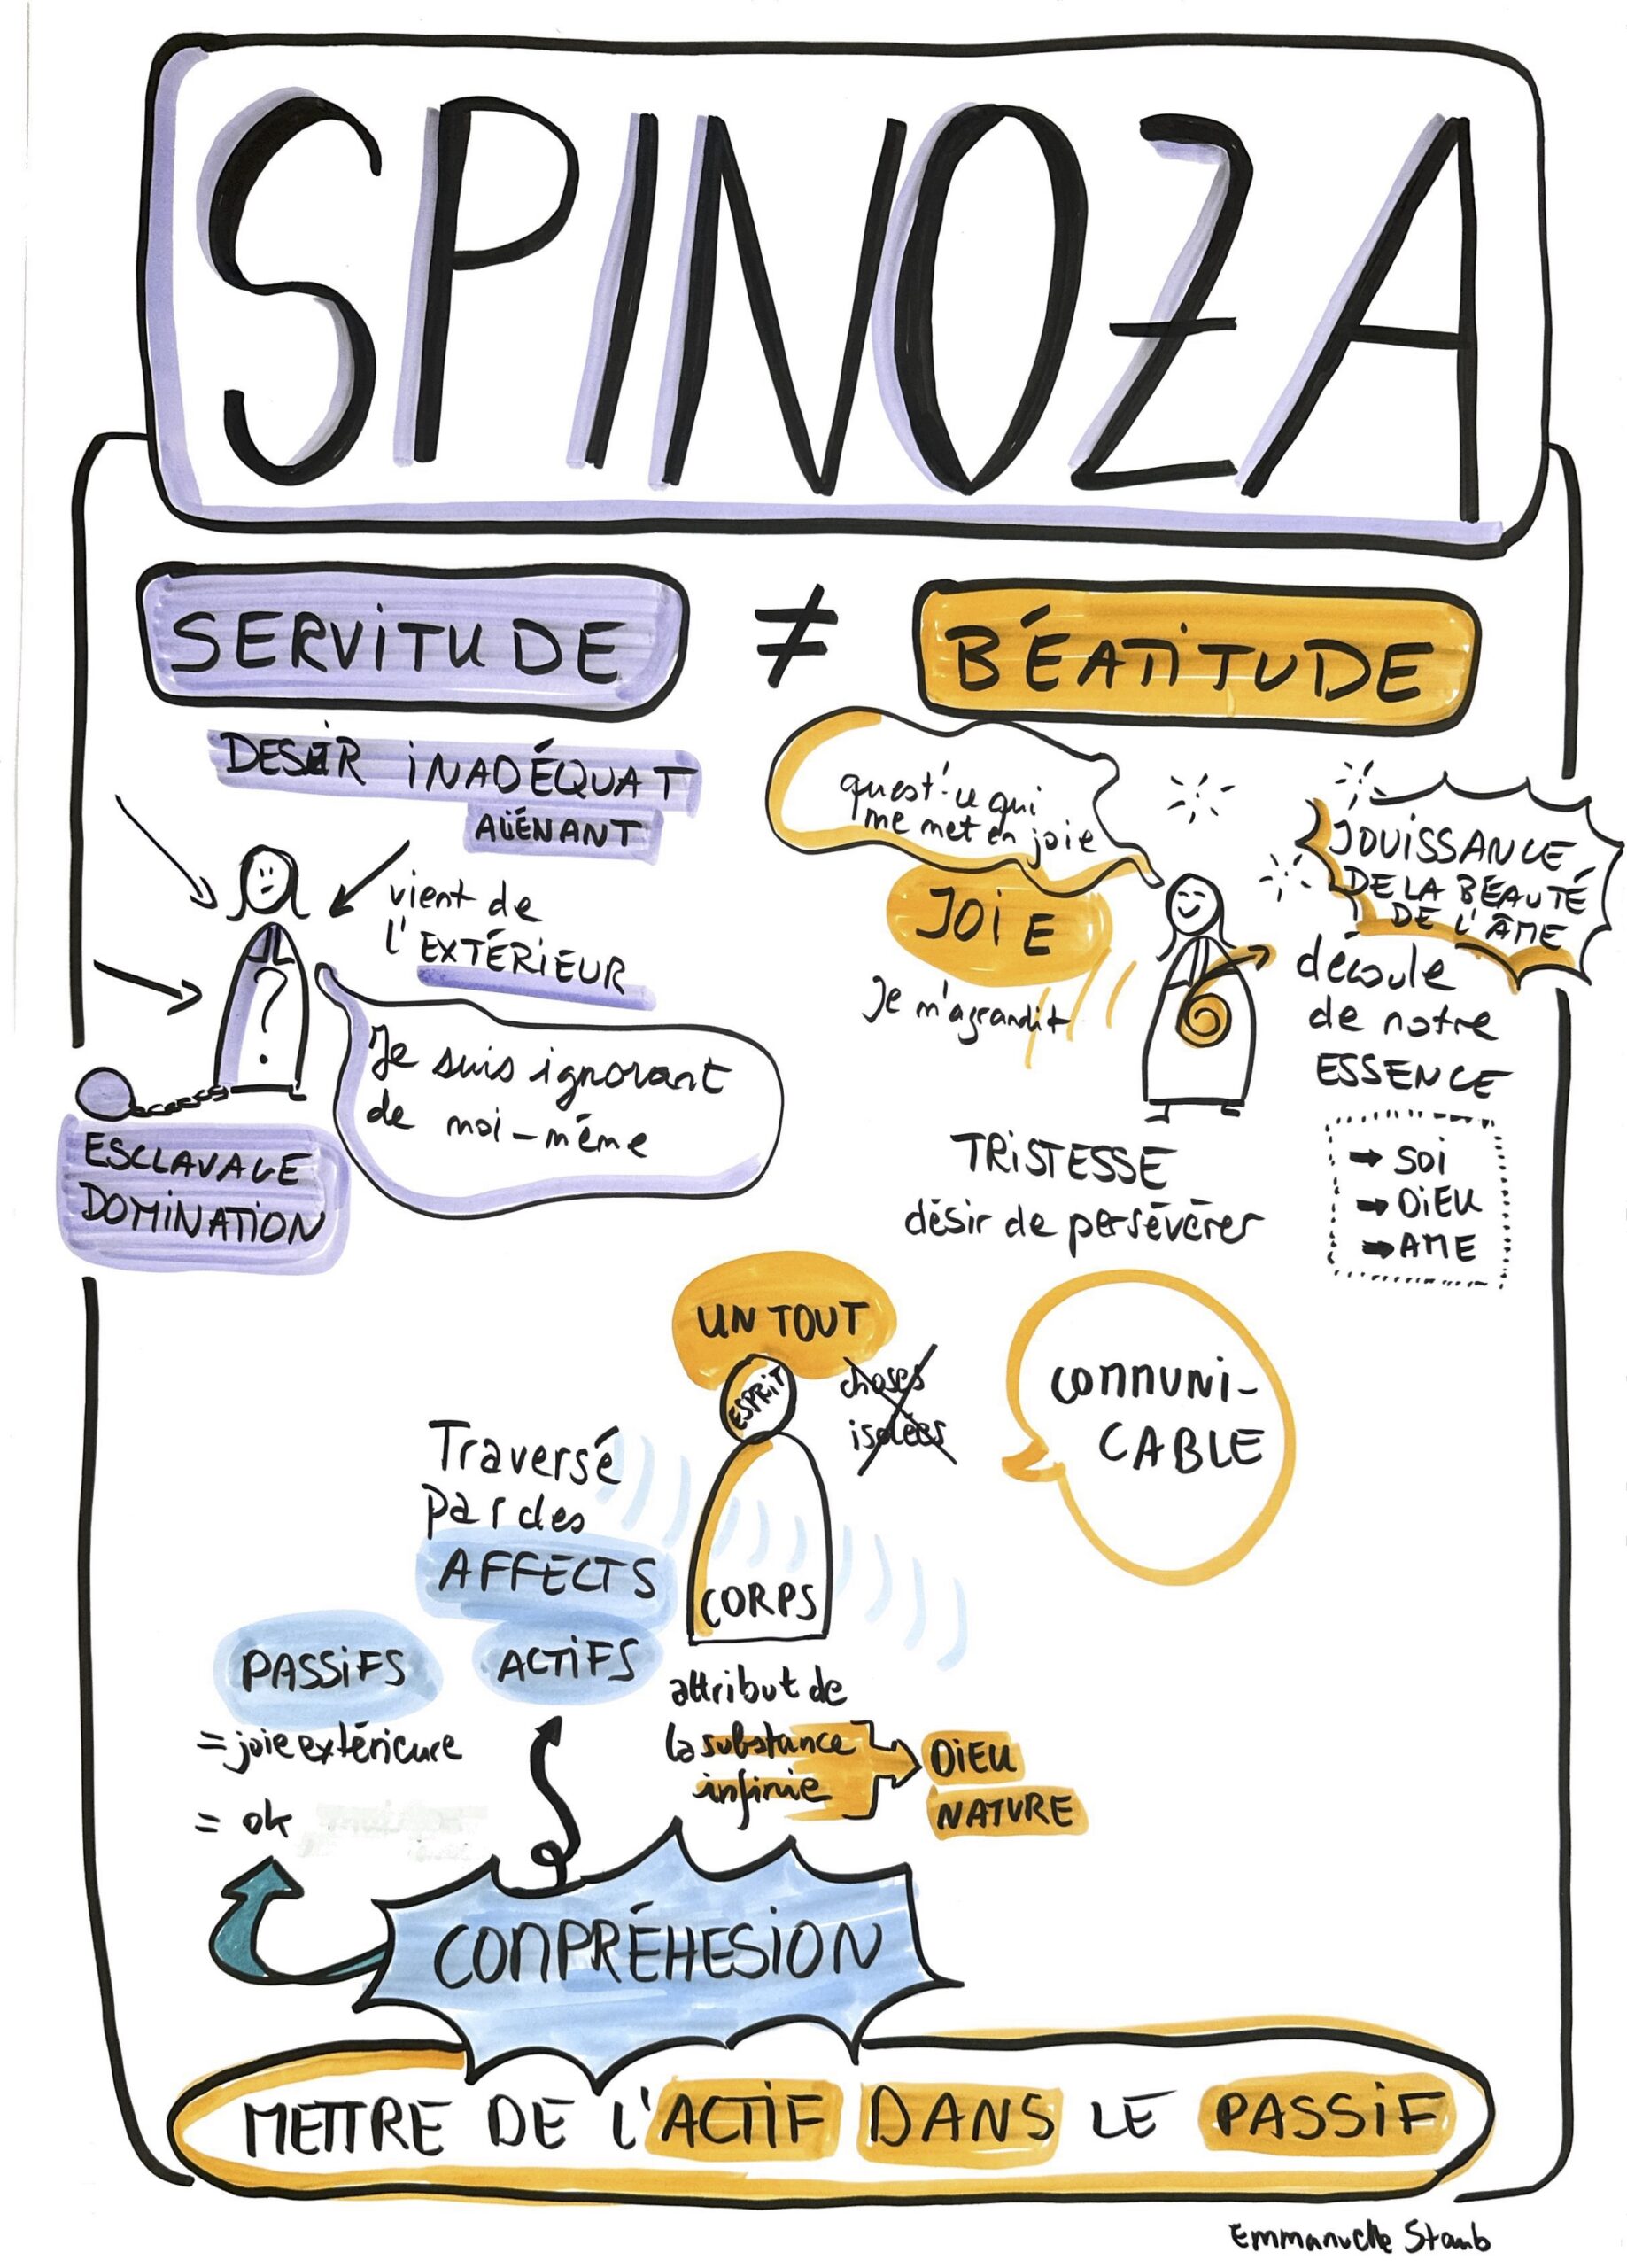 SPINOZA
SERVITUDE
≠
BÉATITUDE
DESIR INADÉQUAT
ALIÉNANT
vient de
l'EXTÉRIEUR
Je suis ignorant
de moi-même
ESCLAVAGE
DOMINATION
quest'ce qui
me met en joie
JOIE
Je m'agrandit
JOUISSANCE
DE LA BEAUTÉ
DE L'ÂME
découle
de notre
ESSENCE
→ SOI
→ DIEU
→ AME
TRISTESSE
désir de persévérer
UN TOUT
ESPRIT
choses
isolées
COMMUNI-
CABLE
Traversé
par des
AFFECTS
CORPS
PASSIFS
ACTIFS
= joie extérieure
= ok
attribut de
la substance
infinie
DIEU
NATURE
COMPRÉHESION
METTRE DE L'ACTIF DANS LE PASSIF
Emmanuelle Staub